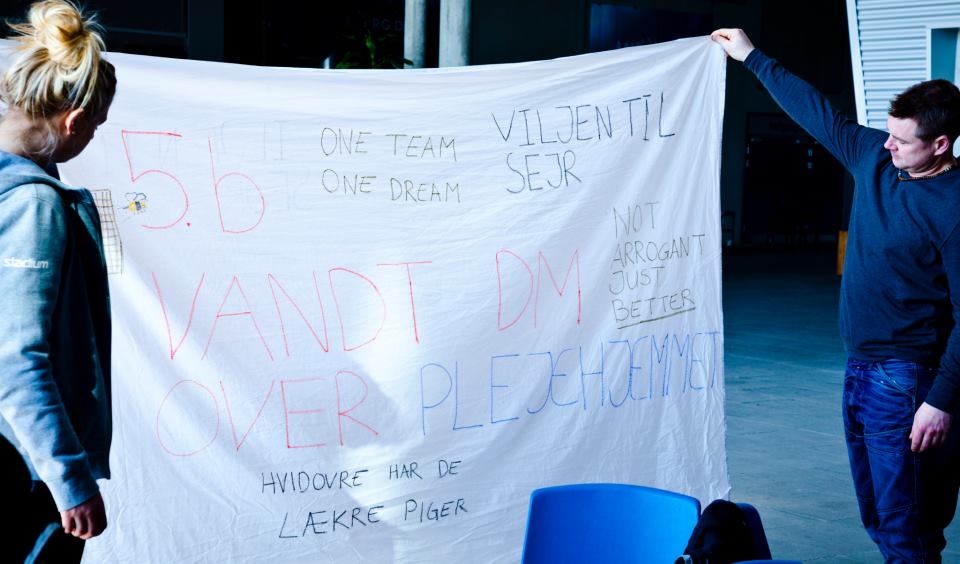 5.b
ONE TEAM
ONE DREAM
VILJEN TIL
SEJR
NOT
ARROGANT
JUST
BETTER
VANDT DM
OVER PLEJEHJEMMET
HVIDOVRE HAR DE
LÆKRE PIGER
stadium